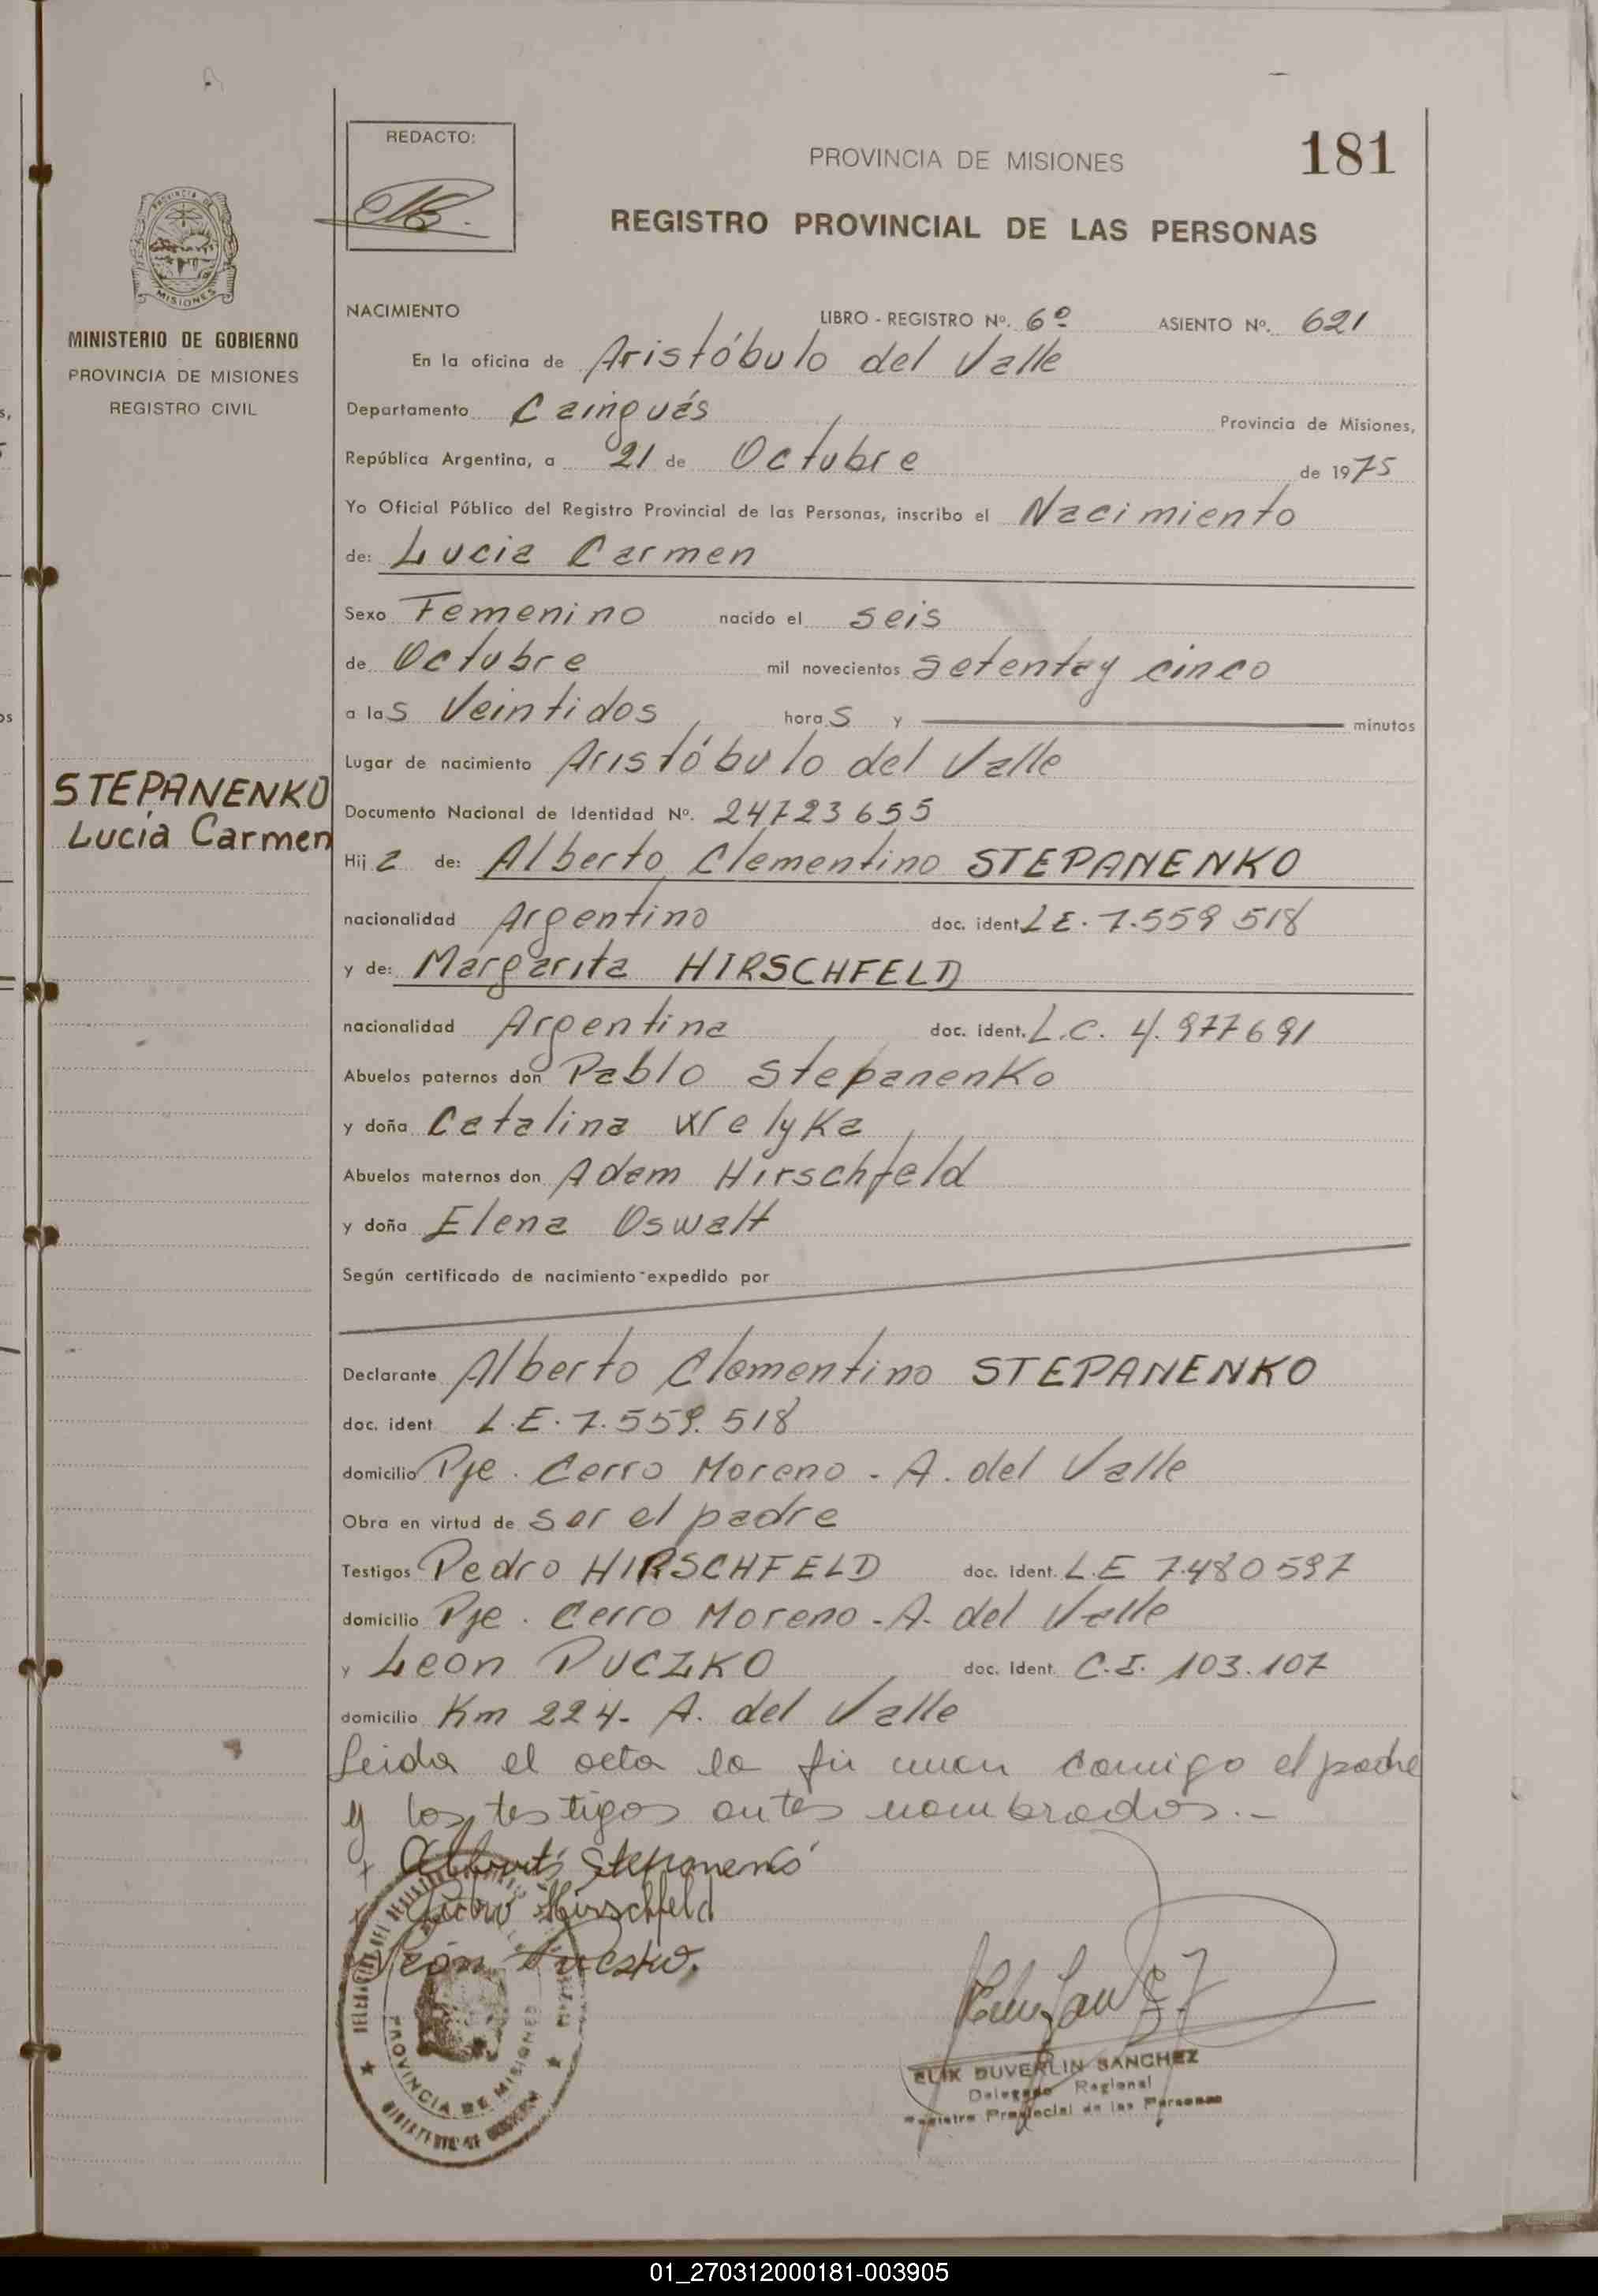 181
REDACTO:
PROVINCIA DE MISIONES
REGISTRO PROVINCIAL DE LAS PERSONAS
MISIONES
MINISTERIO DE GOBIERNO
PROVINCIA DE MISIONES
REGISTRO CIVIL
STEPANENKO
Lucía Carmen
NACIMIENTO LIBRO - REGISTRO Nº. 6º ASIENTO Nº. 621
En la oficina de Aristóbulo del Valle
Departamento Cainguás Provincia de Misiones,
República Argentina, a 21 de Octubre de 1975
Yo Oficial Público del Registro Provincial de las Personas, inscribo el Nacimiento
de: Lucia Carmen
Sexo Femenino nacido el seis
de Octubre mil novecientos setenta y cinco
a las Veintidos horas y minutos
Lugar de nacimiento Aristóbulo del Valle
Documento Nacional de Identidad Nº. 24723655
Hija de: Alberto Clementino STEPANENKO
nacionalidad Argentino doc. ident. L E. 7.559 518
y de: Margarita HIRSCHFELD
nacionalidad Argentina doc. ident. L.C. 4.977691
Abuelos paternos don Pablo Stepanenko
y doña Catalina Welyka
Abuelos maternos don Adam Hirschfeld
y doña Elena Oswalt
Según certificado de nacimiento expedido por
Declarante Alberto Clementino STEPANENKO
doc. ident. L.E. 7.559.518
domicilio Pje. Cerro Moreno - A. del Valle
Obra en virtud de ser el padre
Testigos Pedro HIRSCHFELD doc. Ident. L.E 7.480597
domicilio Pje. Cerro Moreno - A. del Valle
y Leon PUCZKO doc. Ident. C.I. 103.107
domicilio Km 224- A. del Valle
Leida el acta la firman comigo el padre
y los testigos antes nombrados.-
Alberto Stepanenko
Pedro Hirschfeld
León Puczko.
PROVINCIA DE MISIONES
ELIX DUVERLIN SANCHEZ
Delegado Regional
Registro Provincial de las Personas
01_270312000181-003905